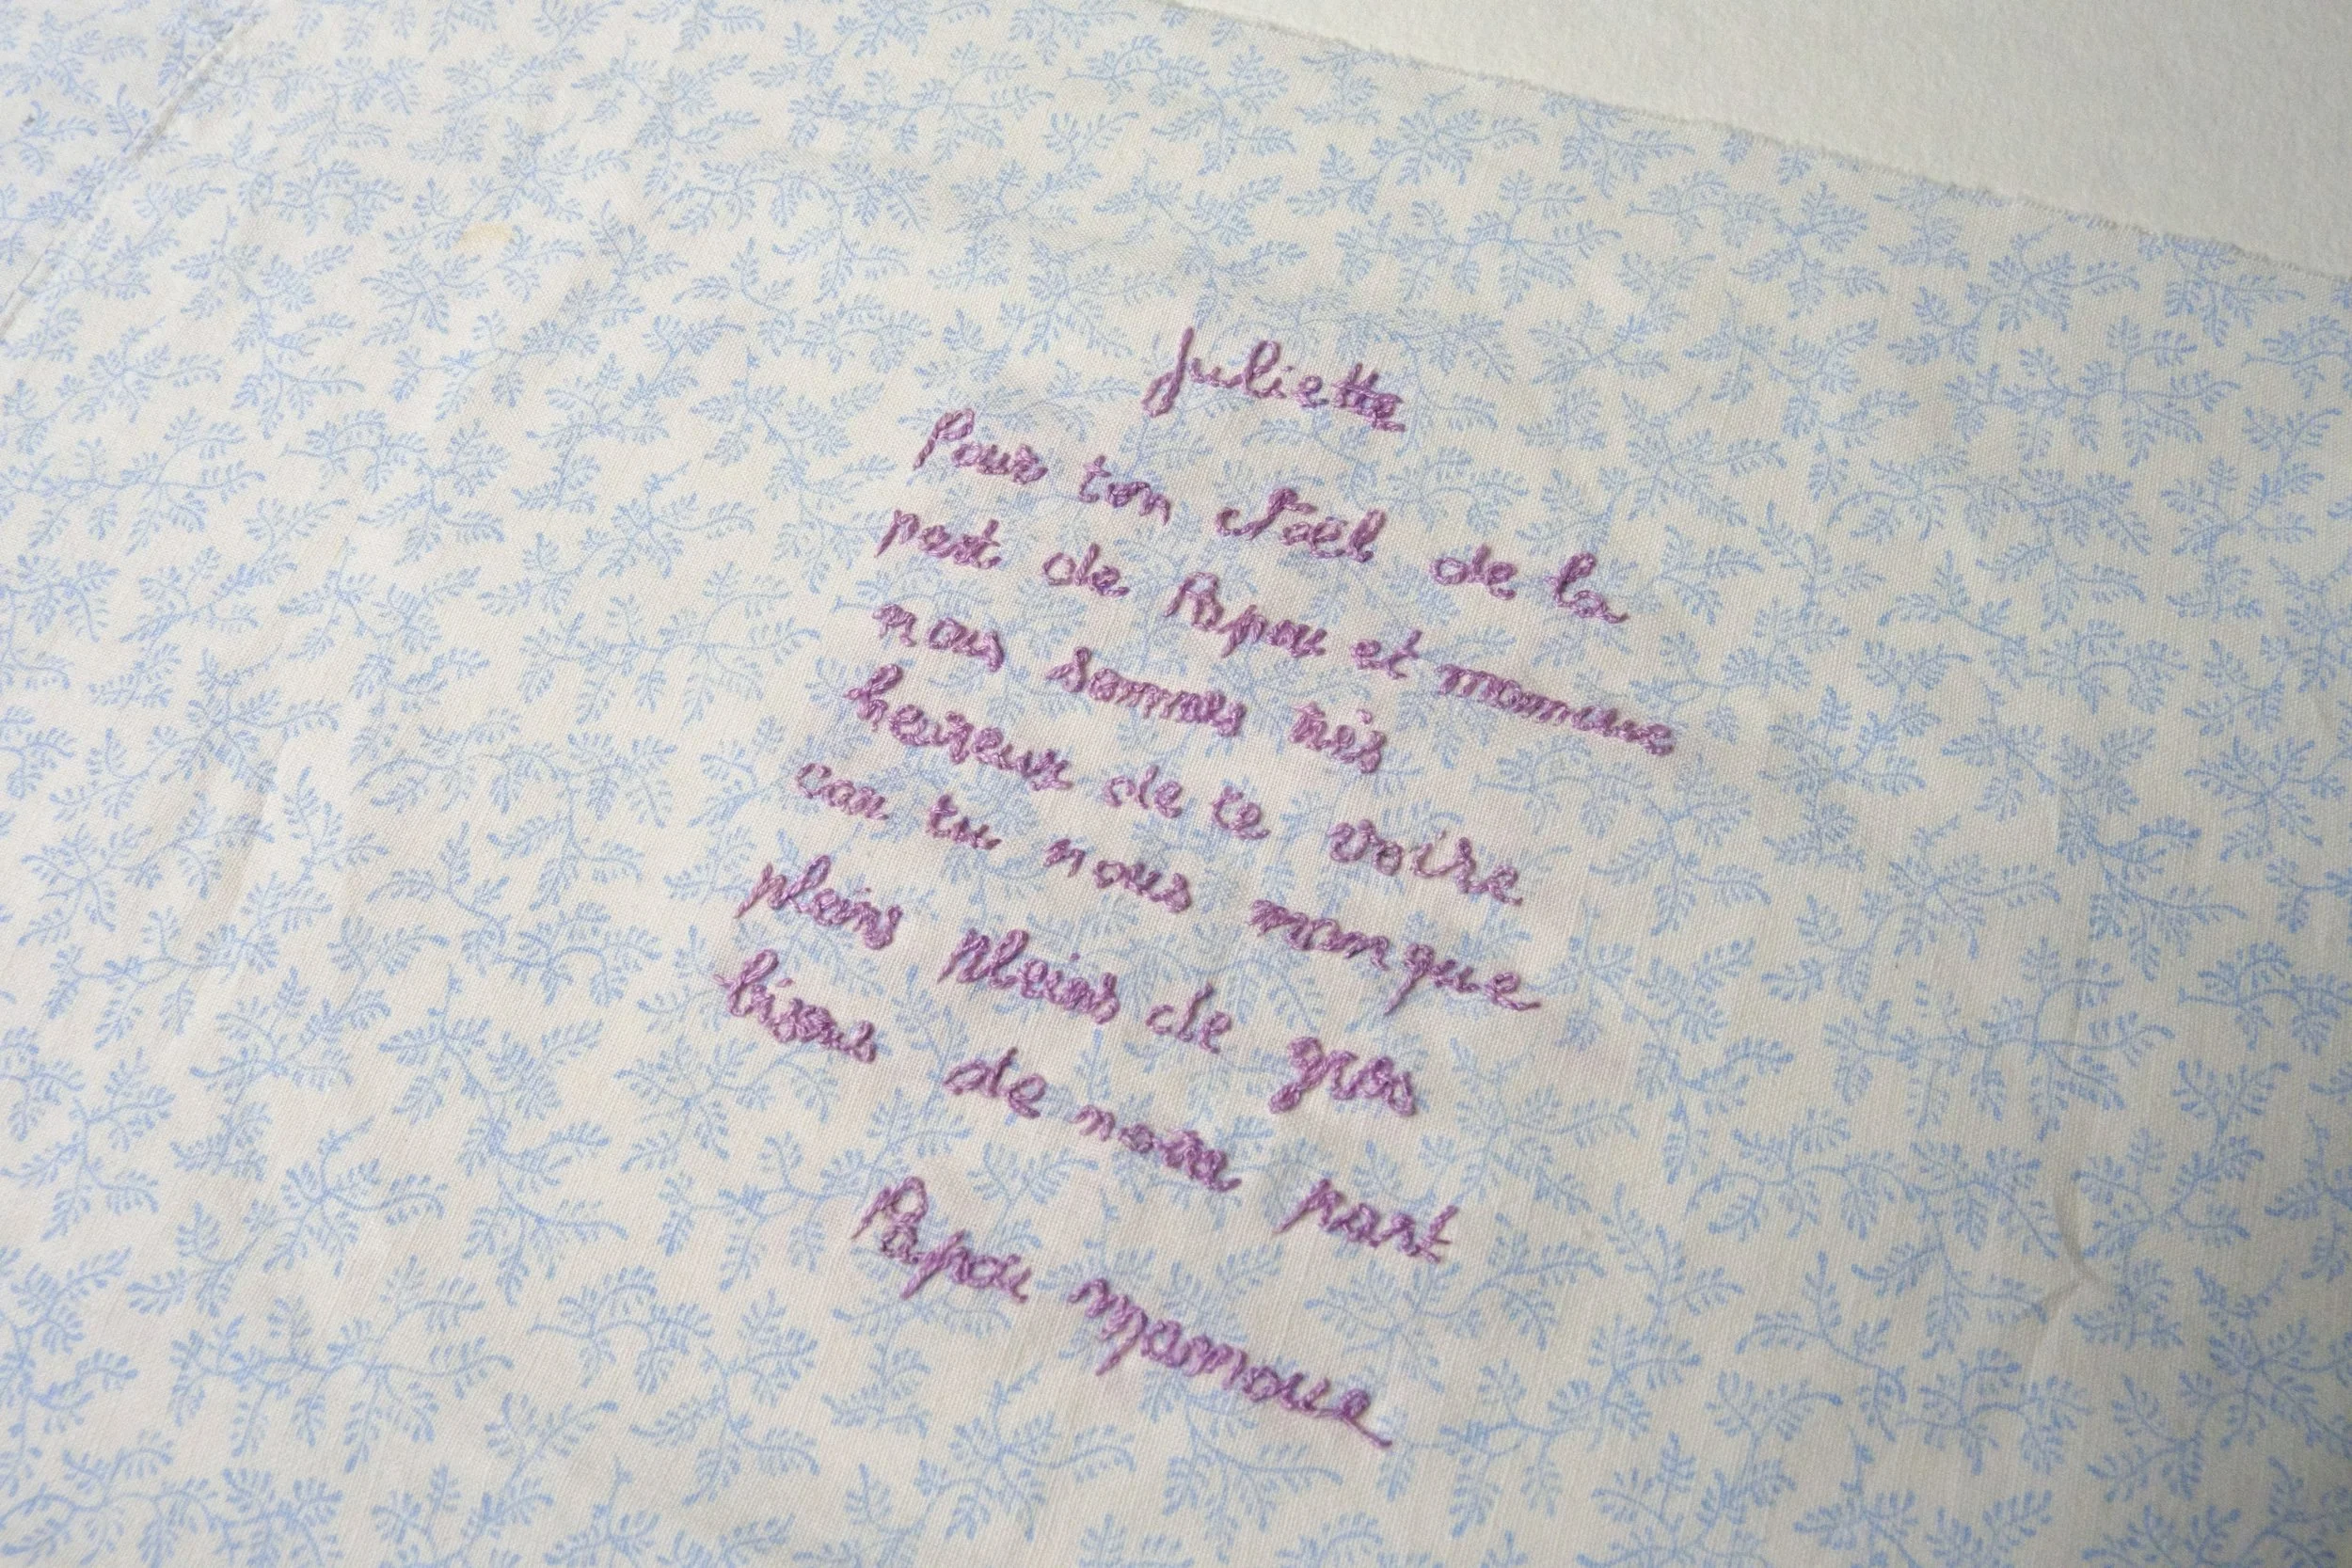 Juliette
Pour ton Noël de la
part de Papou et mamoue
nous sommes très
heureux de te voire
car tu nous manque
pleins pleins de gros
bisous de notre part
Papou mamoue